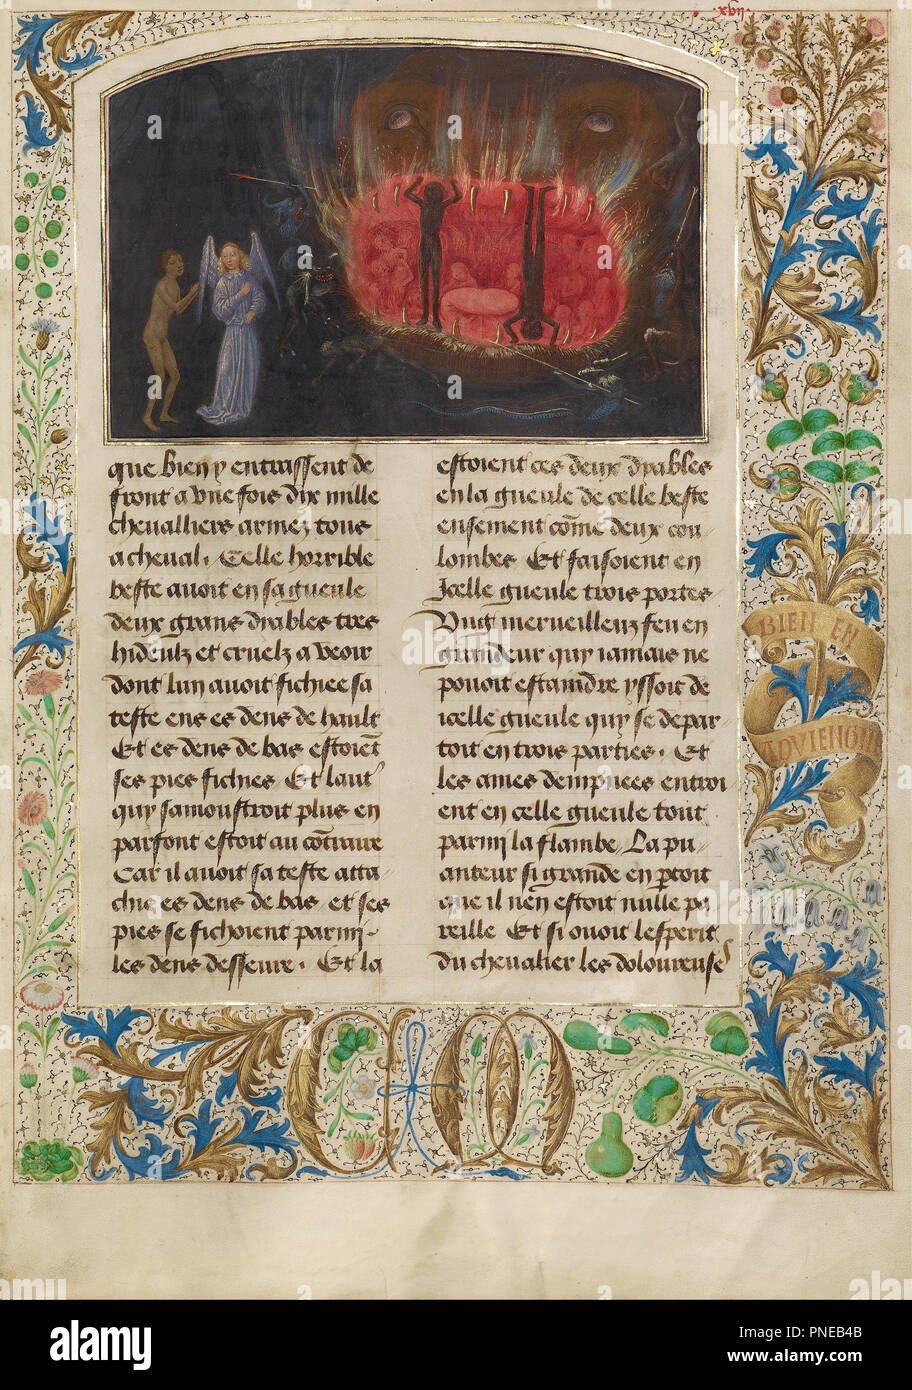 .xvii.
que bien y entrassent de
front a une fois dix mille
chevalliers armez tous
a cheval. Celle horrible
beste avoit en sa gueule
deux grans dyables tres
hideulz et cruelz a veoir
dont lun avoit fichiee sa
teste ens es dens de hault
Et es dens de bas estoiēt
ses pies fichies Et laut'
quy samoustroit plus en
parfont estoit au cōtraire
Car il avoit sa teste atta-
chie es dens de bas et ses
pies se fichoient parmi-
les dens desseure. Et la
estoient ces deux dyables
en la gueule de celle beste
ensement cōme deux cou-
lombes Et faisoient en
Icelle gueule trois portes
Ung merveilleux feu en
grandeur quy iamais ne
pouoit estaindre yssoit de
icelle gueule quy se depar-
toit en trois parties. Et
les ames dempnees entroi-
ent en celle gueule tout
parmi la flambe. La pu-
anteur si grande en ꝑtoit
que il nen estoit nulle pa-
reille Et si avoit lesperit
du chevalier les doloureuses
BIEN EN
ADVIENGNE
a alamy stock photo
Image ID: PNEB4B
www.alamy.com